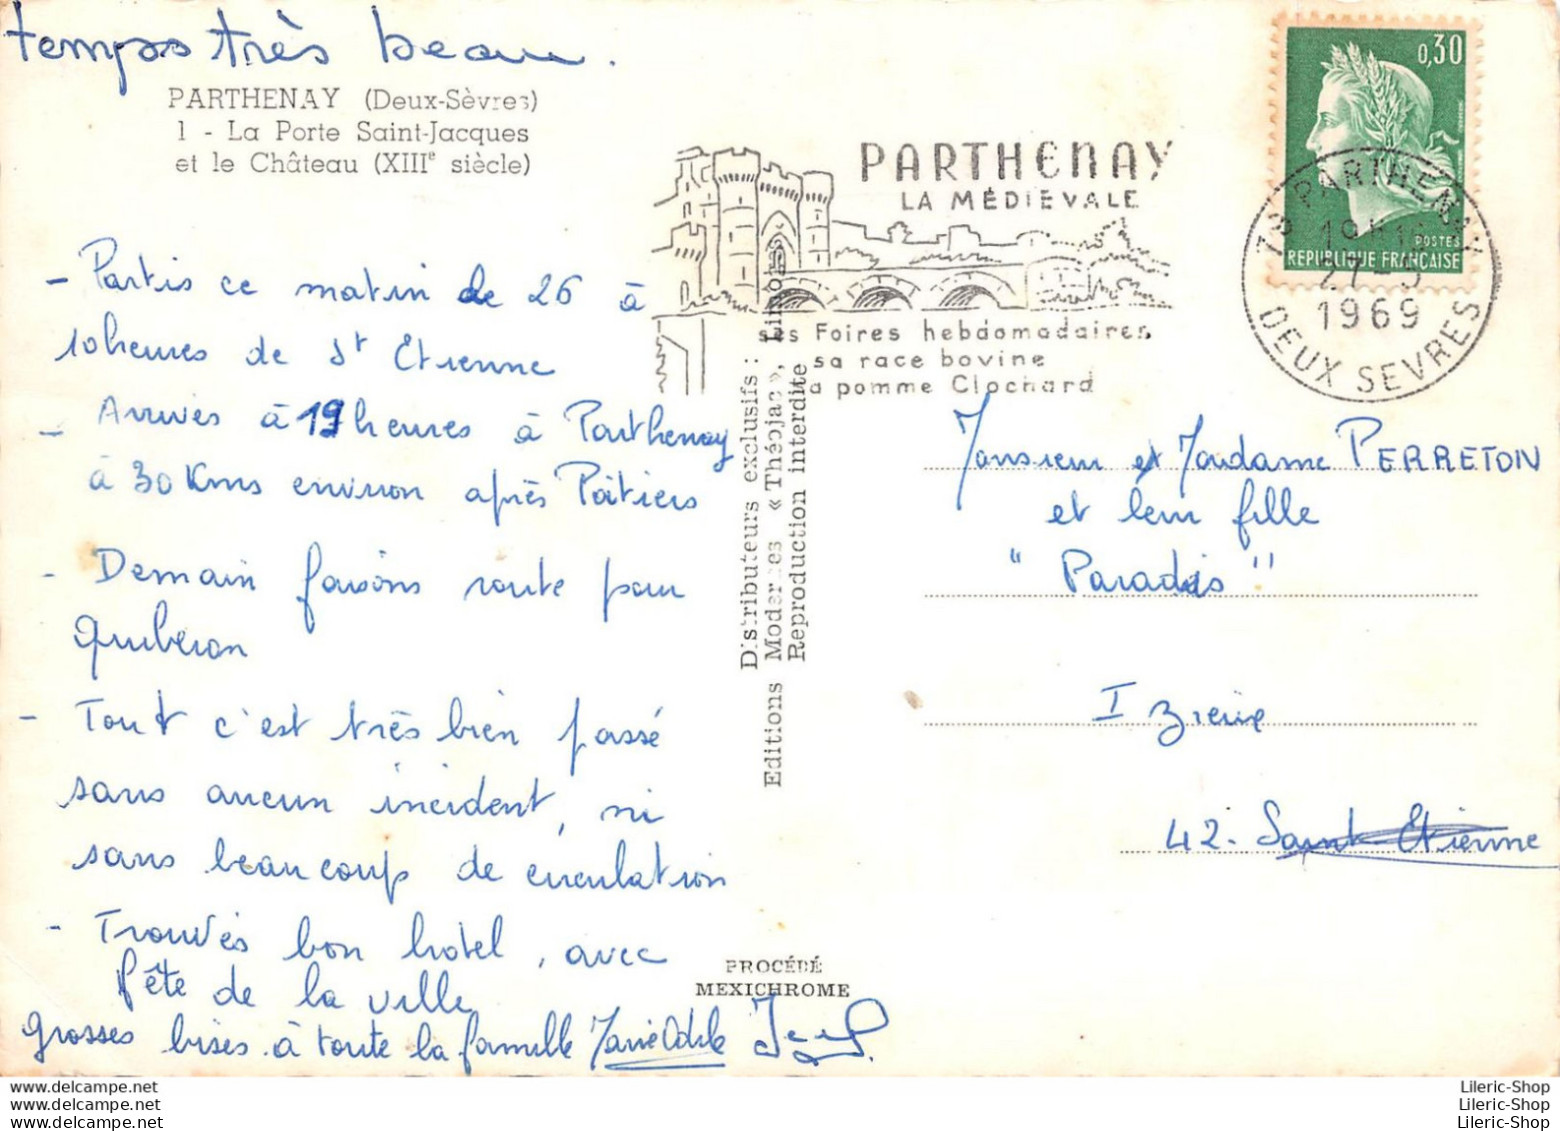 temps très beau.
PARTHENAY (Deux-Sèvres)
1 - La Porte Saint-Jacques
et le Château (XIIIe siècle)
- Partis ce matin de 26 à
10heures de St Etienne
- Arrivés à 19 heures à Parthenay
à 30 Kms environ après Poitiers
- Demain faisons route pour
Quiberon
- Tout c'est très bien passé
sans aucun incident, ni
sans beaucoup de circulation
- Trouvés bon hotel, avec
fête de la ville
grosses bises à toute la famille Marie Odile
Distributeurs exclusifs :
Editions Modernes « Théojac »,
Reproduction interdite
PROCÉDÉ
MEXICHROME
PARTHENAY
LA MÉDIEVALE
ses Foires hebdomadaires
sa race bovine
a pomme Clochard
0,30
POSTES
REPUBLIQUE FRANÇAISE
79 PARTHENAY
27-5
1969
DEUX SEVRES
Monsieur et Madame PERRETON
et leur fille
"Paradis"
Izieux
42. Saint Etienne
delcampe.net
delcampe.net
delcampe.net
Lileric-Shop
Lileric-Shop
Lileric-Shop